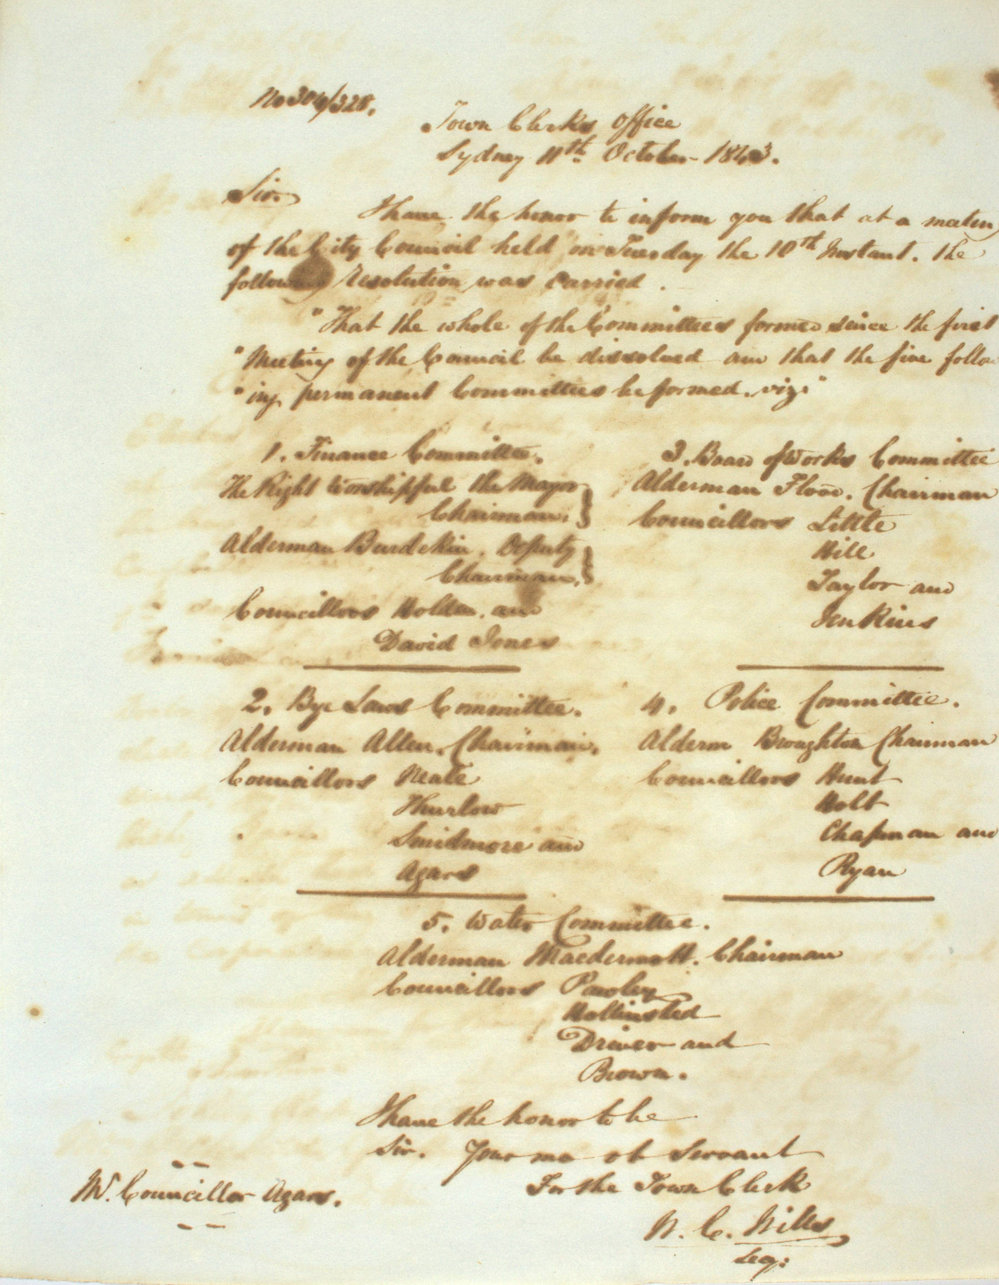 No 304/328.
Town Clerks Office
Sydney 11th October 1843.
Sir
I have the honor to inform you that at a meetin
of the City Council held on Tuesday the 10th Instant. the
following Resolution was carried.
"That the whole of the Committees formed since the first
"Meeting of the Council be dissolved and that the five follow
"ing permanent Committees be formed. viz."
1. Finance Committee.
The Right Worshipful the Mayor
Chairman.
Alderman Burdekin. Deputy
Chairman.
Councillors Holden. and
David Jones
2. Bye Laws Committee.
Alderman Allen. Chairman.
Councillors Neale
Thurlow
Smidmore and
Agars
3. Board of Works Committee
Alderman Flood. Chairman
Councillors Little
Hill
Taylor and
Jenkins
4. Police Committee.
Alderm Broughton Chairman
Councillors Hunt
Holt
Chapman and
Ryan
5. Water Committee.
Alderman Macdermott. Chairman
Councillors Pawley
Hollinsted
Driver and
Brown.
I have the honor to be
Sir. Your mo ob Servant
For the Town Clerk
W. C. Wills
Mr. Councillor Agars.